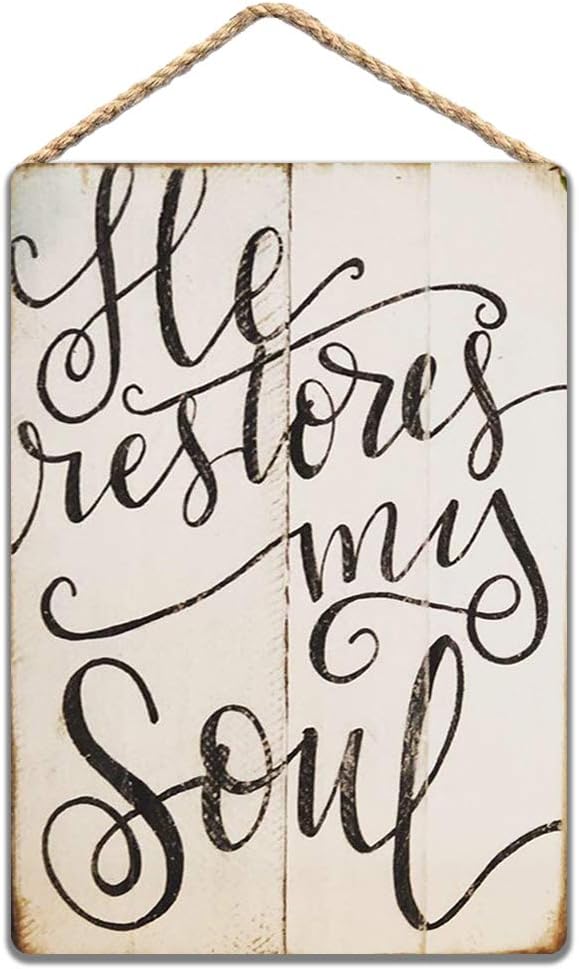 He
restores
my
Soul